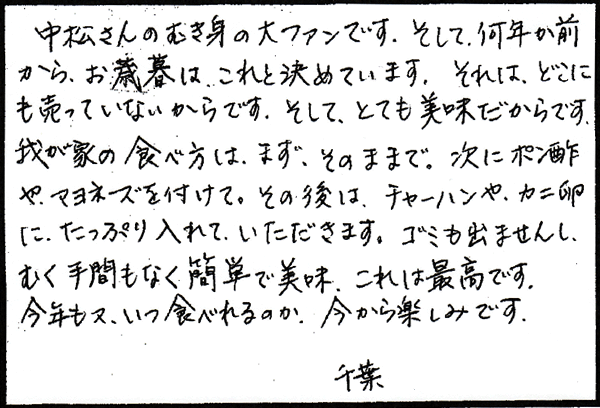 中松さんのむき身の大ファンです。そして、何年か前
から、お歳暮は、これと決めています。それは、どこに
も売っていないからです。そして、とても美味だからです。
我が家の食べ方は、まず、そのままで。次にポン酢
や、マヨネーズを付けて。その後は、チャーハンや、カニ卵
に、たっぷり入れて、いただきます。ゴミも出ませんし、
むく手間もなく簡単で美味、これは最高です。
今年も又、いつ食べれるのか、今から楽しみです。
千葉